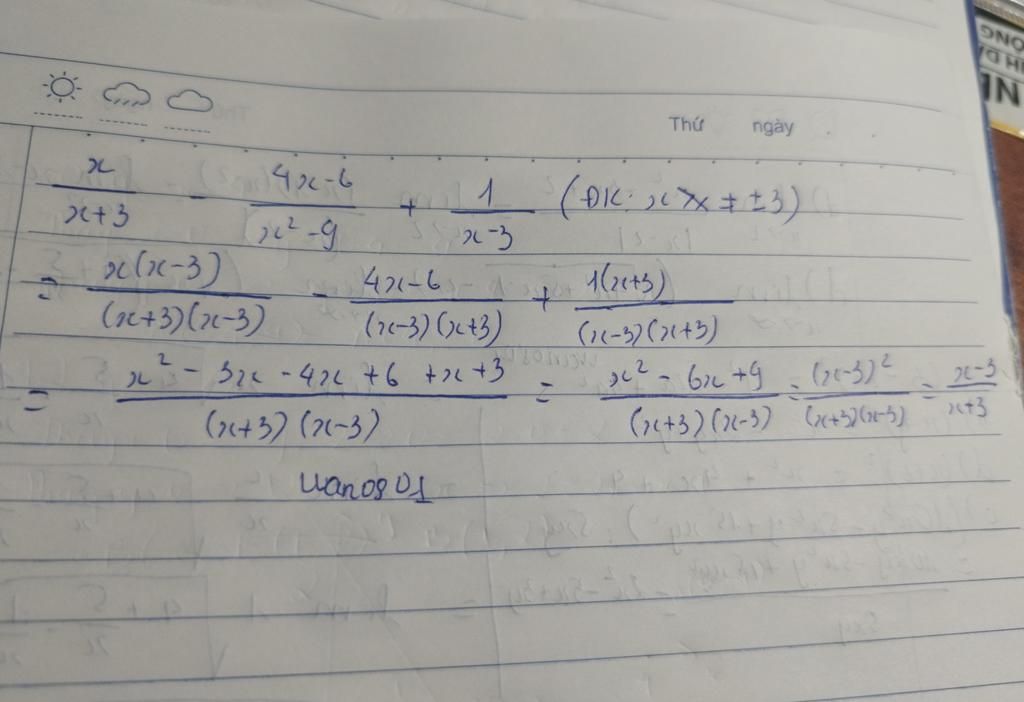 Thứ ngày
x/(x+3) - (4x-6)/(x²-9) + 1/(x-3) (ĐK: x ≠ ±3)
= x(x-3)/((x+3)(x-3)) - (4x-6)/((x-3)(x+3)) + 1(x+3)/((x-3)(x+3))
= (x² - 3x - 4x + 6 + x + 3)/((x+3)(x-3)) = (x² - 6x + 9)/((x+3)(x-3)) = (x-3)²/((x+3)(x-3)) = (x-3)/(x+3)